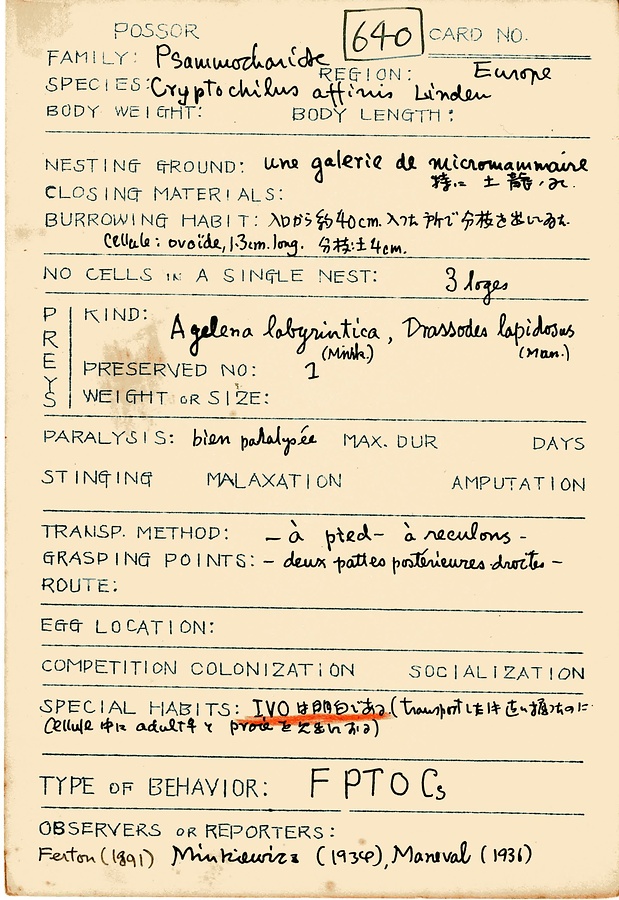 POSSOR 640 CARD NO.
FAMILY: Psammocharidae
REGION: Europe
SPECIES: Cryptochilus affinis Linden
BODY WEIGHT: BODY LENGTH:
NESTING GROUND: une galerie de micromammaire
特に
CLOSING MATERIALS:
BURROWING HABIT: 入口から約40cm. 入った所で分枝を出している.
Cellule: ovoïde, 1.3cm. long. 分枝は4cm.
NO CELLS IN A SINGLE NEST: 3 loges
PREYS
KIND: Agelena labyrintica, Drassodes lapidosus
(Mink.) (Man.)
PRESERVED NO: 1
WEIGHT OR SIZE:
PARALYSIS: bien paralysée MAX. DUR DAYS
STINGING MALAXATION AMPUTATION
TRANSP. METHOD: - à pied - à reculons -
GRASPING POINTS: - deux pattes postérieures droites -
ROUTE:
EGG LOCATION:
COMPETITION COLONIZATION SOCIALIZATION
SPECIAL HABITS: IVO は明白である. (transport した
Cellule 中に adult ♀ と proie を
TYPE OF BEHAVIOR: F PTO Cs
OBSERVERS OR REPORTERS:
Ferton (1891) Minkiewicz (1934), Maneval (1936)